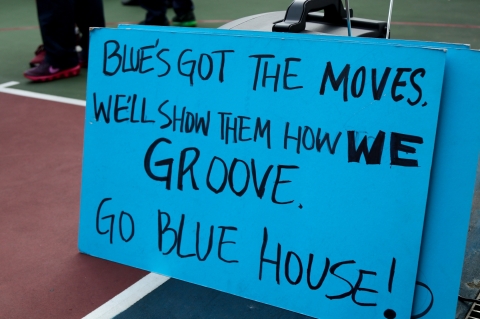 BLUE'S GOT THE MOVES.
WE'LL SHOW THEM HOW WE
GROOVE.
GO BLUE HOUSE!